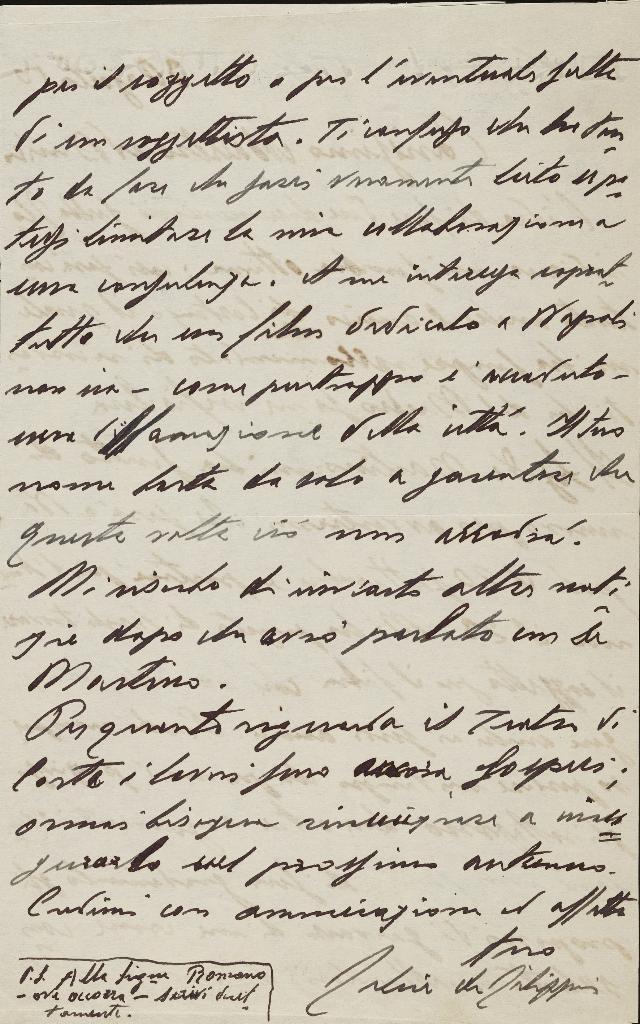 per il soggetto o per l'eventuale scelta
di un soggettista. Ti confesso che ho tan
to da fare che farei veramente lieto se po
tessi limitare la mia collaborazione a
una consulenza. A me interessa soprat
tutto che un film dedicato a Napoli
non sia - come purtroppo è accaduto -
una diffamazione della città. Il tuo
nome basta da solo a garantire che
questa volta ciò non accadrà.
Mi riserbo di inviarti altre noti
zie dopo che avrò parlato con De
Martino.
Per quanto riguarda il Teatro di
Corte i lavori sono ancora sospesi;
ormai bisogna rinunziare a inau
gurarlo nel prossimo autunno.
Credimi con ammirazione ed affetto
tuo
de Filippis
P.S. Alla Sigra Romano
- ove occorra - scrivi diret
tamente.